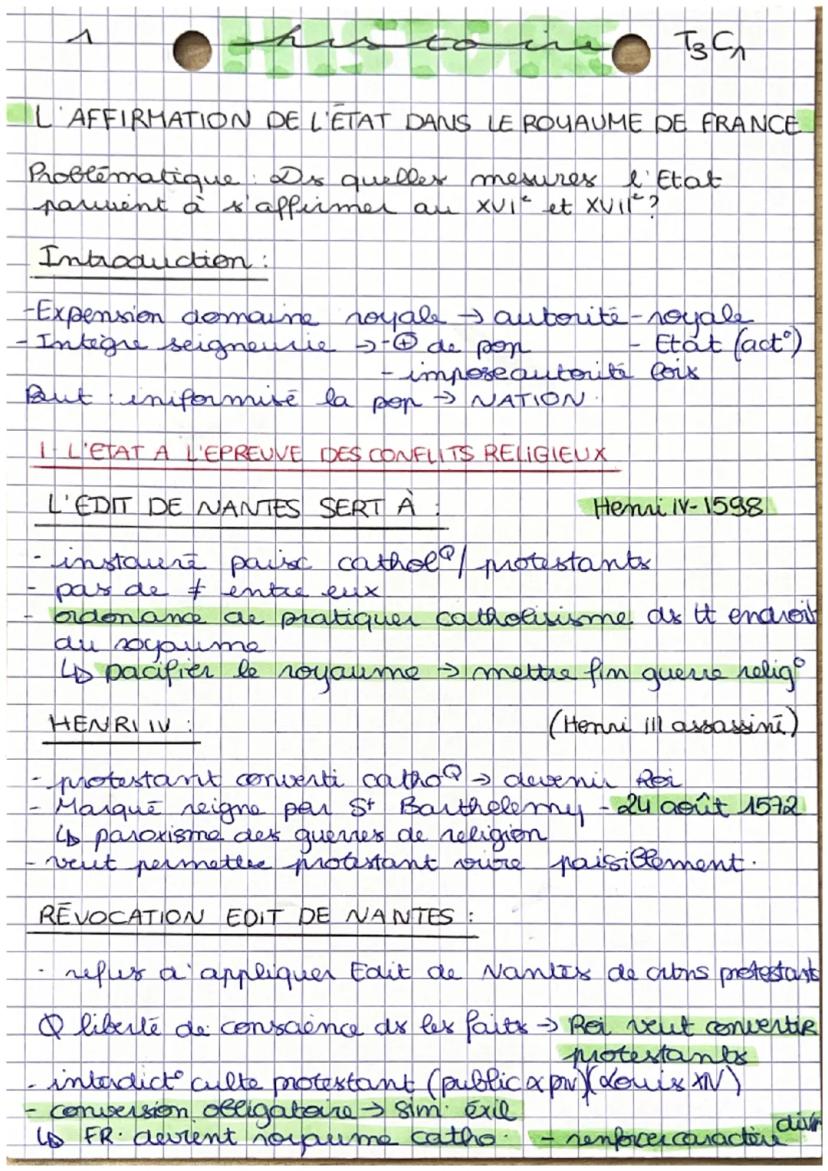 1 histoire T3C1
HISTOIRE
L'AFFIRMATION DE L'ÉTAT DANS LE ROYAUME DE FRANCE
Problématique : Ds quelles mesures l'Etat
parvient à s'affirmer au XVIe et XVIIe ?
Introduction :
-Expension domaine royale → autorité-royale
- Intègre seigneurie → -⊕ de pop - Etat (act°)
- impose autorité lois
But : uniformisé la pop → NATION.
I- L'ETAT A L'EPREUVE DES CONFLITS RELIGIEUX
L'EDIT DE NANTES SERT À : Henri IV-1598
- instauré paix catholQ/ protestants
- pas de ≠ entre eux
- ordonance de pratiquer catholisisme ds tt endroit
du royaume
↳ pacifier le royaume → mettre fin guerre relig°
HENRI IV : (Henri III assassiné)
- protestant converti cathoQ → devenir Roi
- Marqué reigne par St Barthélemy - 24 août 1572
↳ paroxisme des guerres de religion
- veut permettre protestant vivre paisiblement.
RÉVOCATION EDIT DE NANTES :
- refus d'appliquer Edit de Nantes de crtns protestants
liberté de consaience ds les faits → Roi veut convertir
protestants
- interdict° culte protestant (public & pv) (Louis XIV)
- conversion obligatoire → sim. éxil
↳ FR. devient royaume catho. - renforcer caractère divin